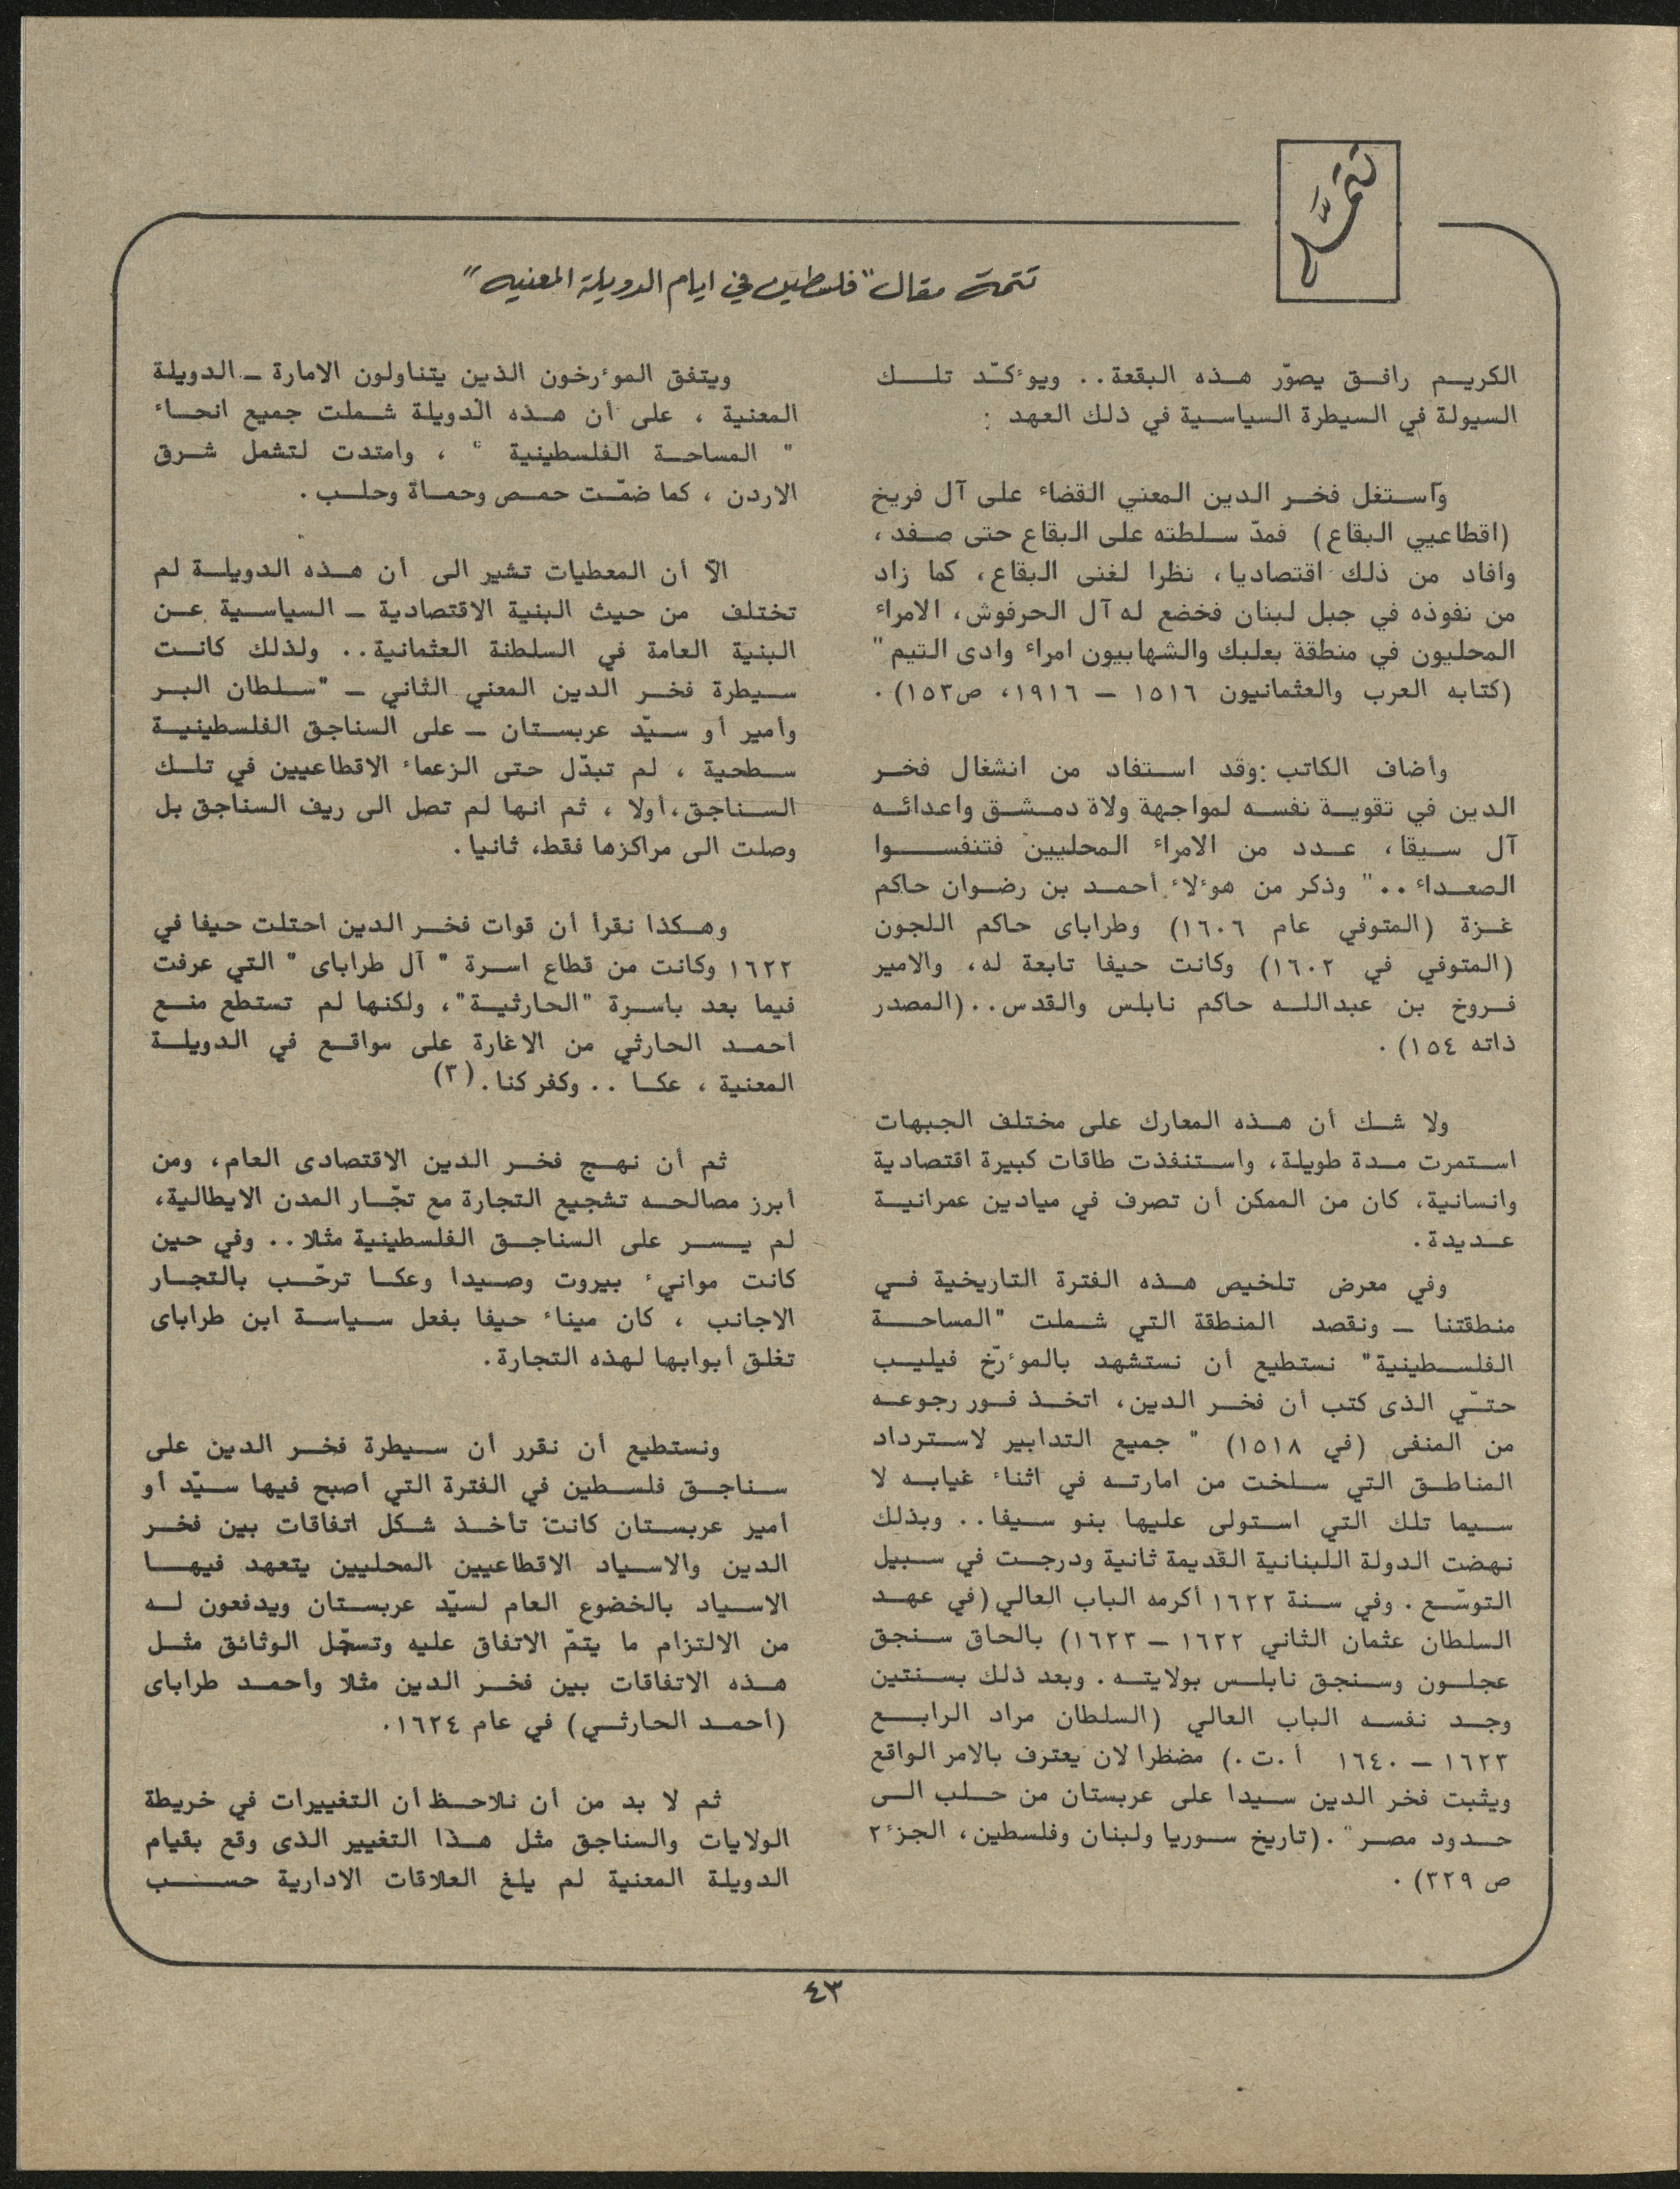 تتمّة
تتمة مقال "فلسطين في ايام الدويلة المعنيه"
الكريم رافق يصوّر هذه البقعة.. ويوءكّد تلك
السيولة في السيطرة السياسية في ذلك العهد :
وآستغل فخر الدين المعني القضاء على آل فريخ
(اقطاعيي البقاع) فمدّ سلطته على البقاع حتى صفد،
وافاد من ذلك اقتصاديا، نظرا لغنى البقاع، كما زاد
من نفوذه في جبل لبنان فخضع له آل الحرفوش، الامراء
المحليون في منطقة بعلبك والشهابيون امراء وادى التيم"
(كتابه العرب والعثمانيون ١٥١٦ – ١٩١٦، ص١٥٣).
وأضاف الكاتب :وقد استفاد من انشغال فخر
الدين في تقوية نفسه لمواجهة ولاة دمشق واعدائه
آل سيقا، عدد من الامراء المحليين فتنفسوا
الصعداء .." وذكر من هوءلاء أحمد بن رضوان حاكم
غزة (المتوفي عام ١٦٠٦) وطراباى حاكم اللجون
(المتوفي في ١٦٠٢) وكانت حيفا تابعة له، والامير
فروخ بن عبدالله حاكم نابلس والقدس.. (المصدر
ذاته ١٥٤).
ولا شك أن هذه المعارك على مختلف الجبهات
استمرت مدة طويلة، واستنفذت طاقات كبيرة اقتصادية
وانسانية، كان من الممكن أن تصرف في ميادين عمرانية
عديدة.
وفي معرض تلخيص هذه الفترة التاريخية في
منطقتنا – ونقصد المنطقة التي شملت "المساحة
الفلسطينية" نستطيع أن نستشهد بالموءرّخ فيليب
حتّي الذى كتب أن فخر الدين، اتخذ فور رجوعه
من المنفى (في ١٥١٨) " جميع التدابير لاسترداد
المناطق التي سلخت من امارته في اثناء غيابه لا
سيما تلك التي استولى عليها بنو سيفا.. وبذلك
نهضت الدولة اللبنانية القديمة ثانية ودرجت في سبيل
التوسّع . وفي سنة ١٦٢٢ أكرمه الباب العالي (في عهد
السلطان عثمان الثاني ١٦٢٢ – ١٦٢٣) بالحاق سنجق
عجلون وسنجق نابلس بولايته. وبعد ذلك بسنتين
وجد نفسه الباب العالي (السلطان مراد الرابع
١٦٢٣ – ١٦٤٠ أ.ت.) مضظرا لان يعترف بالامر الواقع
ويثبت فخر الدين سيدا على عربستان من حلب الى
حدود مصر". (تاريخ سوريا ولبنان وفلسطين، الجزء ٢
ص ٣٢٩).
ويتفق الموءرخون الذين يتناولون الامارة – الدويلة
المعنية ، على أن هذه الدويلة شملت جميع انحاء
" المساحة الفلسطينية " ، وامتدت لتشمل شرق
الاردن ، كما ضمّت حمص وحماة وحلب.
الاّ أن المعطيات تشير الى أن هذه الدويلة لم
تختلف من حيث البنية الاقتصادية – السياسية عن
البنية العامة في السلطنة العثمانية.. ولذلك كانت
سيطرة فخر الدين المعني الثاني – "سلطان البر
وأمير أو سيّد عربستان – على السناجق الفلسطينية
سطحية ، لم تبدّل حتى الزعماء الاقطاعيين في تلك
السناجق،أولا ، ثم انها لم تصل الى ريف السناجق بل
وصلت الى مراكزها فقط، ثانيا.
وهكذا نقرأ أن قوات فخر الدين احتلت حيفا في
١٦٢٢ وكانت من قطاع اسرة " آل طراباى " التي عرفت
فيما بعد باسرة "الحارثية"، ولكنها لم تستطع منع
أحمد الحارثي من الاغارة على مواقع في الدويلة
المعنية ، عكا .. وكفر كنا. (٣)
ثم أن نهج فخر الدين الاقتصادى العام، ومن
أبرز مصالحه تشجيع التجارة مع تجّار المدن الايطالية،
لم يسر على السناجق الفلسطينية مثلا.. وفي حين
كانت موانيء بيروت وصيدا وعكا ترحّب بالتجار
الاجانب ، كان ميناء حيفا بفعل سياسة ابن طراباى
تغلق أبوابها لهذه التجارة.
ونستطيع أن نقرر أن سيطرة فخر الدين على
سناجق فلسطين في الفترة التي أصبح فيها سيّد أو
أمير عربستان كانت تأخذ شكل اتفاقات بين فخر
الدين والاسياد الاقطاعيين المحليين يتعهد فيها
الاسياد بالخضوع العام لسيّد عربستان ويدفعون له
من الالتزام ما يتمّ الاتفاق عليه وتسجّل الوثائق مثل
هذه الاتفاقات بين فخر الدين مثلا وأحمد طراباى
(أحمد الحارثي) في عام ١٦٢٤.
ثم لا بد من أن نلاحظ أن التغييرات في خريطة
الولايات والسناجق مثل هذا التغيير الذى وقع بقيام
الدويلة المعنية لم يلغ العلاقات الادارية حسب
٤٣